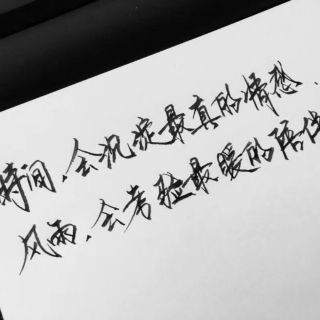 时间,会沉淀最真的情愫,
风雨,会考验最暖的陪伴